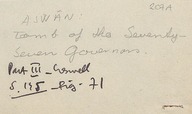 209A
ASWÂN:
Tomb of the Seventy-
Seven Governors.
Part III - Creswell
S. 145 - Fig. 71